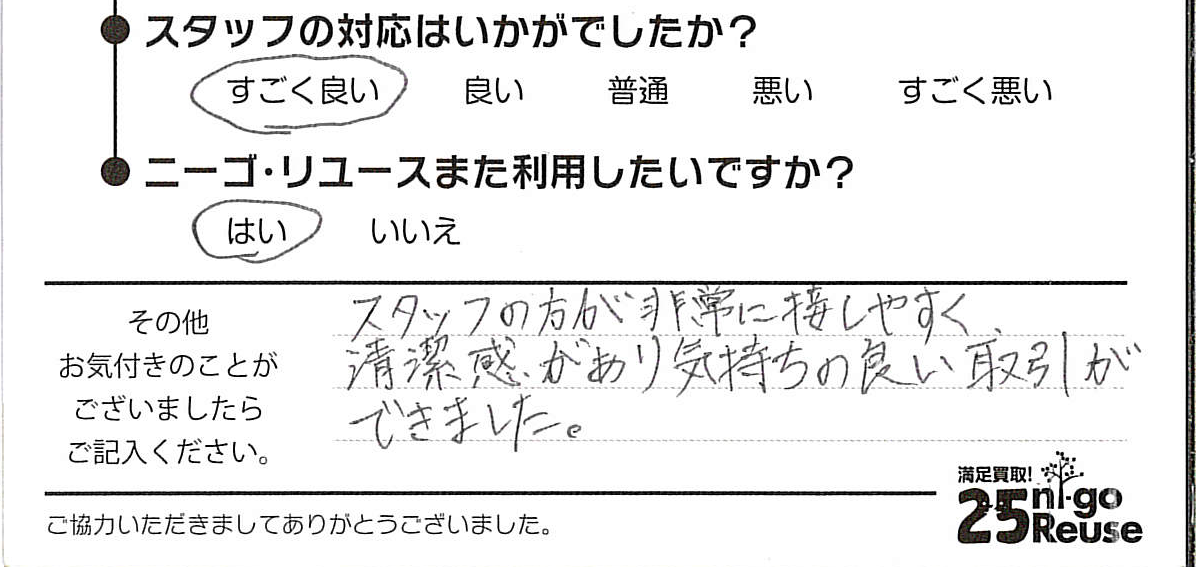 スタッフの対応はいかがでしたか？
すごく良い 良い 普通 悪い すごく悪い
ニーゴ・リユースまた利用したいですか？
はい いいえ
その他
お気付きのことが
ございましたら
ご記入ください。
スタッフの方が非常に接しやすく、
清潔感があり気持ちの良い取引が
できました。
ご協力いただきましてありがとうございました。
満足買取!
25 ni-go
Reuse